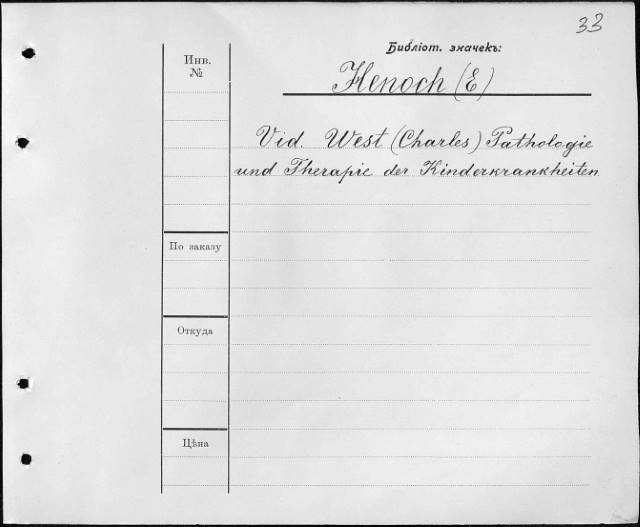 33
Библіот. значекъ:
Инв.
№
Henoch (E)
Vid. West (Charles) Pathologie
und Therapie der Kinderkrankheiten.
По заказу
Откуда
Цѣна